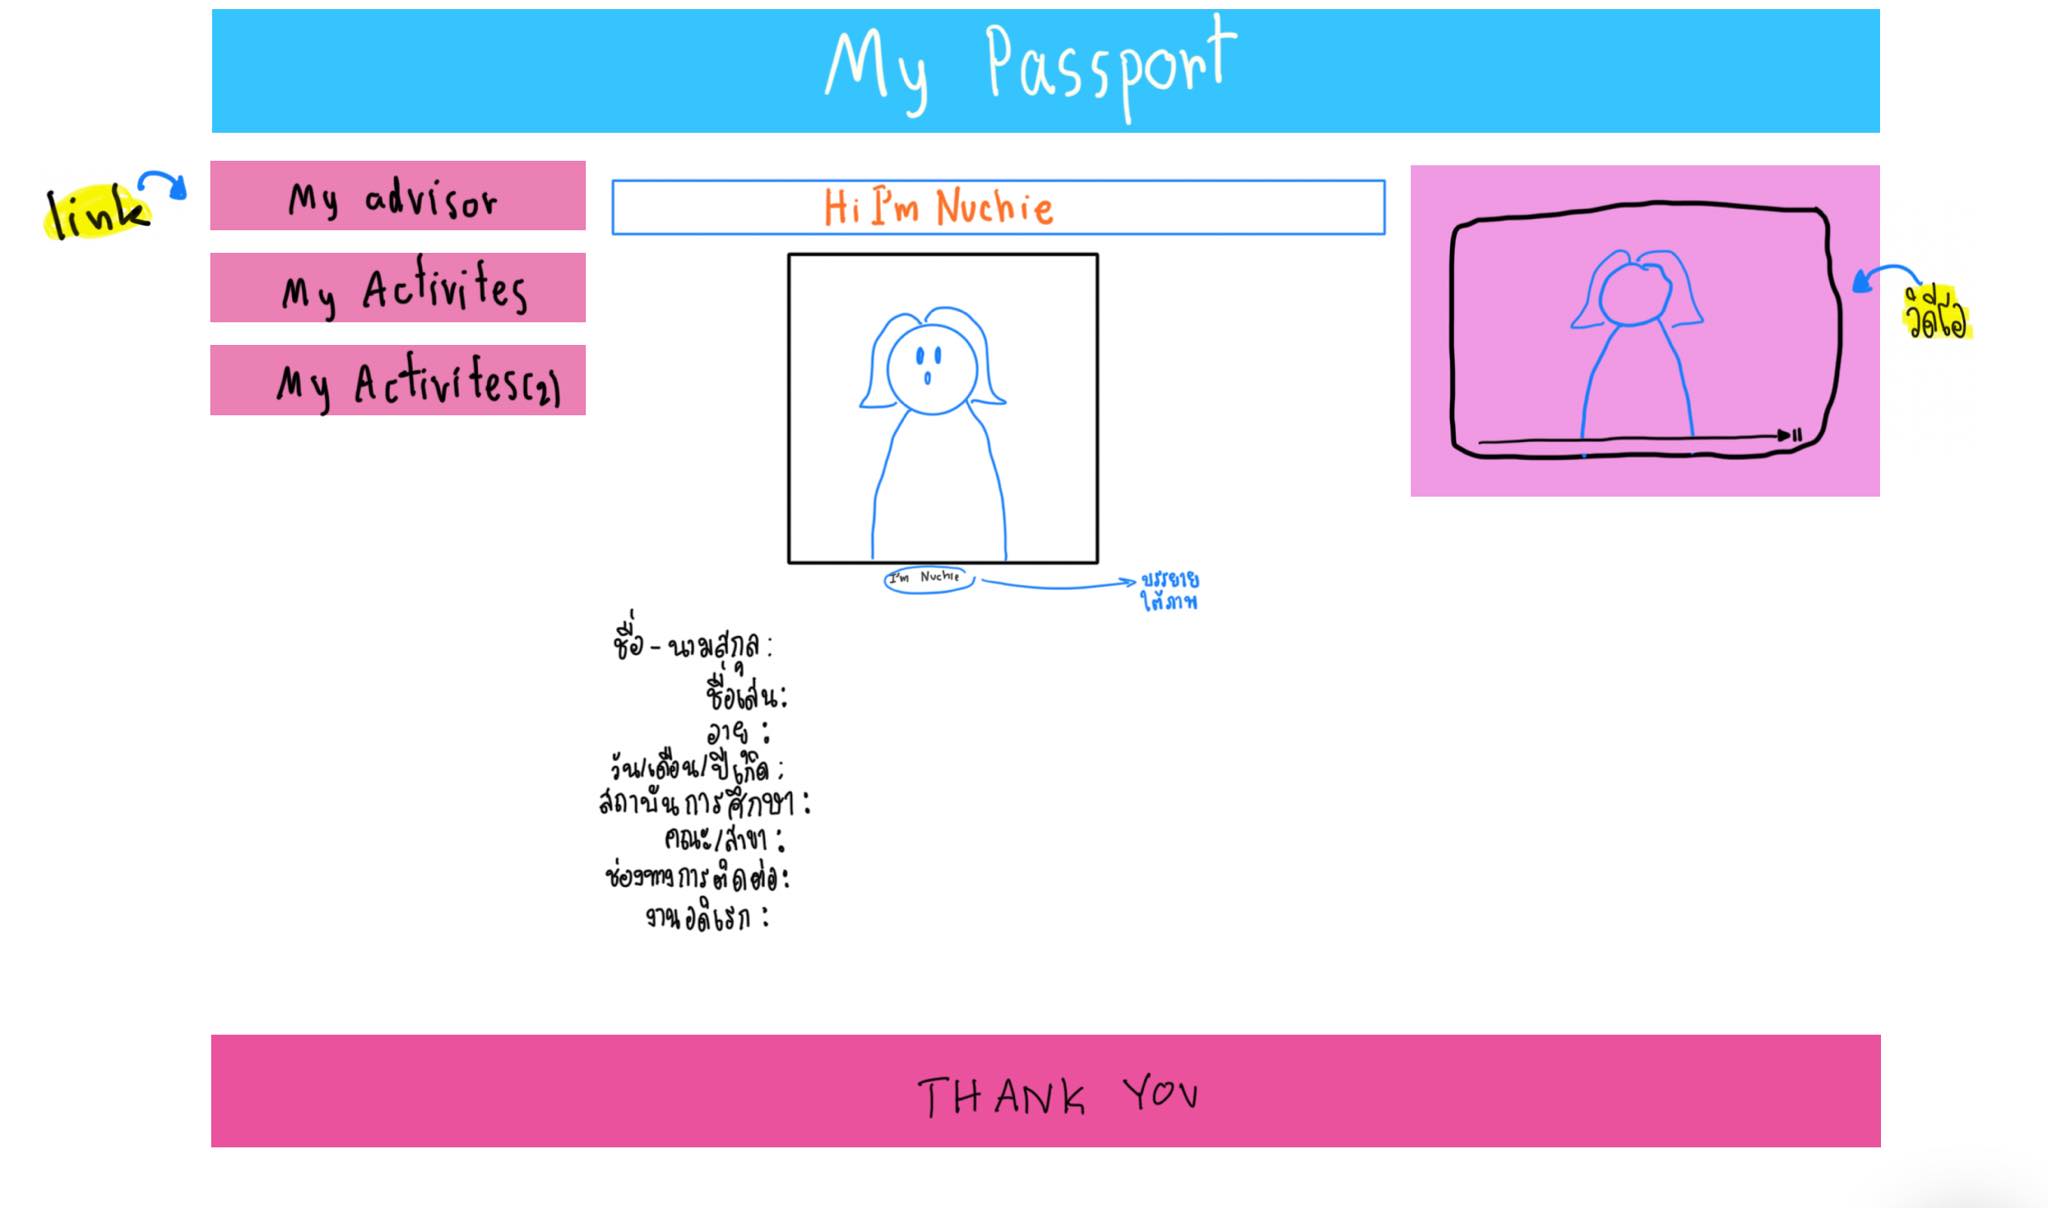 My Passport
link
My advisor
My Activites
My Activites(2)
Hi I'm Nuchie
วิดีโอ
I'm Nuchie
บรรยาย
ใต้ภาพ
ชื่อ - นามสกุล :
ชื่อเล่น :
อายุ :
วัน/เดือน/ปีเกิด :
สถาบันการศึกษา :
คณะ/สาขา :
ช่องทางการติดต่อ :
งานอดิเรก :
THANK YOU